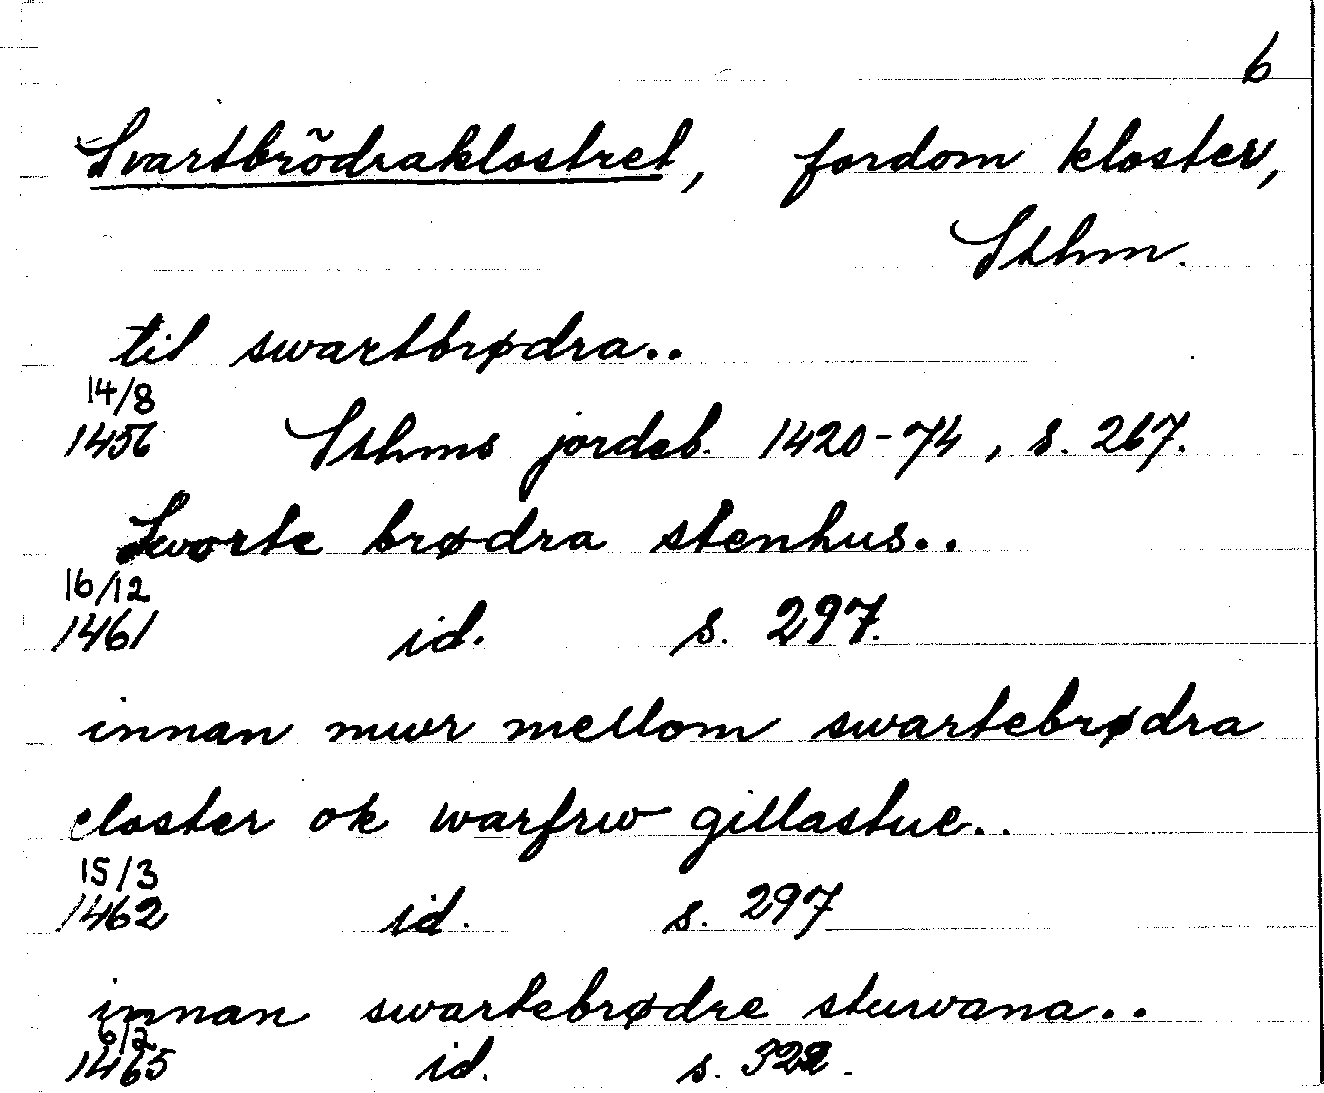 6
Svartbrödraklostret, fordom kloster,
Sthm.
til swartbrødra..
14/8
1456 Sthms jordeb. 1420-74, s. 267.
Sworte brødra stenhus..
16/12
1461 id. s. 297.
innan mwr mellom swartebrødra
closter ok warfrw gillastue..
15/3
1462 id. s. 297
innan swartebrødre stuwana..
6/2
1465 id. s. 322.